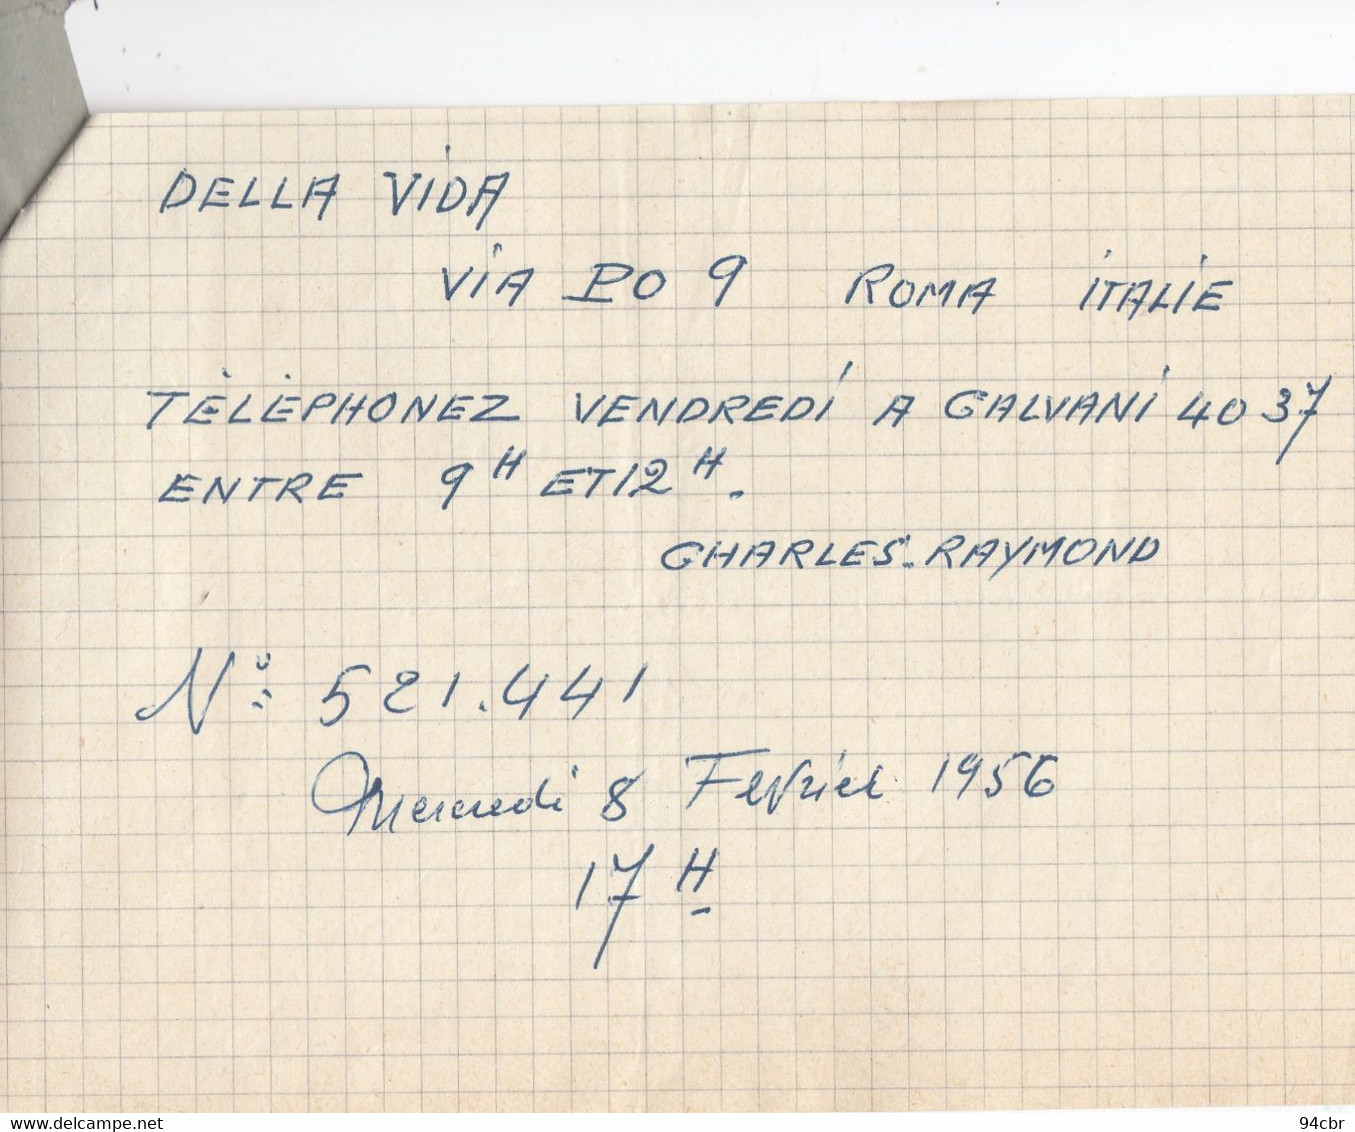 DELLA VIDA
VIA PO 9 ROMA ITALIE
TÉLÉPHONEZ VENDREDI A GALVANI 40 37
ENTRE 9H ET 12H.
CHARLES-RAYMOND
N°: 521.441
Mercredi 8 Fevrier 1956
17H
www.delcampe.net
94cbr